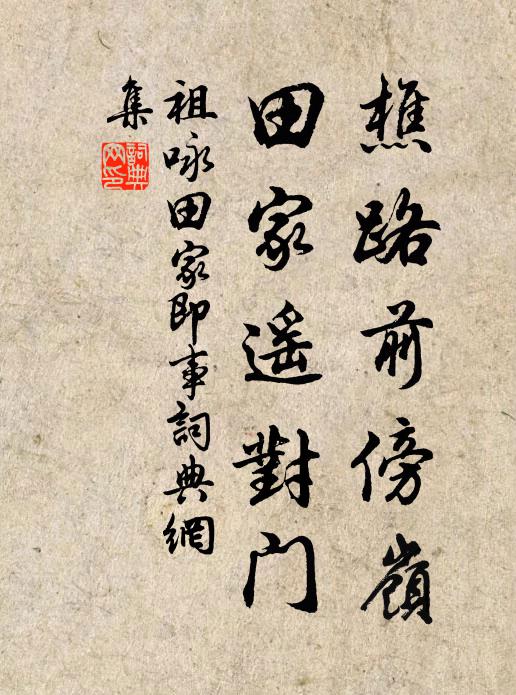 樵路前傍嶺
田家遥對门
祖咏田家即事詞典網
集
詞典網印